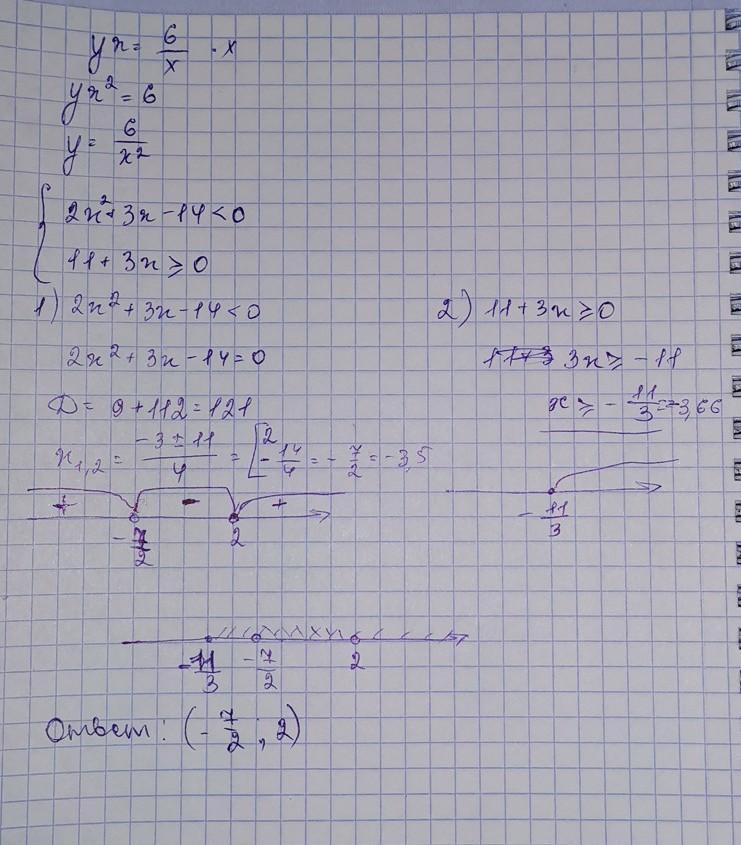 yx = 6/x · x
yx² = 6
y = 6/x²
{ 2x² + 3x - 14 < 0
11 + 3x ≥ 0
1) 2x² + 3x - 14 < 0
2x² + 3x - 14 = 0
D = 9 + 112 = 121
x₁,₂ = (-3 ± 11)/4 = [ 2
-14/4 = -7/2 = -3,5
+ - +
-7/2 2
2) 11 + 3x ≥ 0
3x ≥ -11
x ≥ -11/3 = -3,66
-11/3
-11/3 -7/2 2
Ответ: (-7/2; 2)